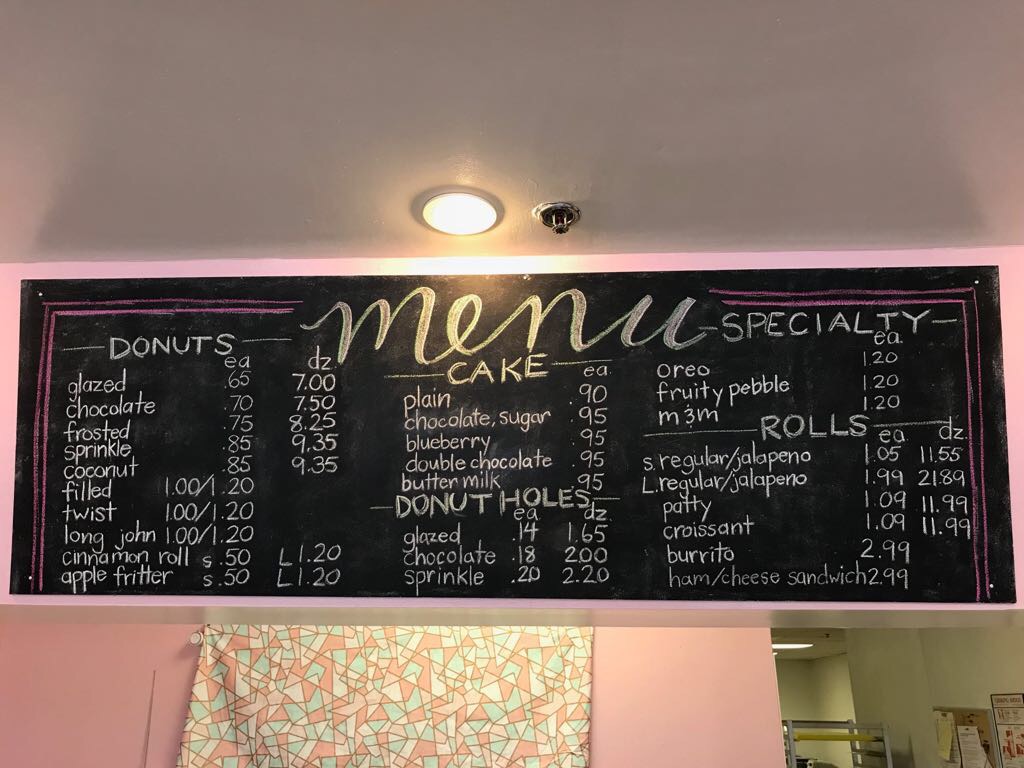 menu
DONUTS
ea dz.
glazed .65 7.00
chocolate .70 7.50
frosted .75 8.25
sprinkle .85 9.35
coconut .85 9.35
filled 1.00/1.20
twist 1.00/1.20
long john 1.00/1.20
cinnamon roll s .50 L 1.20
apple fritter s .50 L 1.20
CAKE
ea.
plain .90
chocolate, sugar .95
blueberry .95
double chocolate .95
butter milk .95
DONUT HOLES
ea dz.
glazed .14 1.65
chocolate .18 2.00
sprinkle .20 2.20
SPECIALTY
ea.
oreo 1.20
fruity pebble 1.20
m&m 1.20
ROLLS
ea dz.
s. regular/jalapeno 1.05 11.55
L. regular/jalapeno 1.99 21.89
patty 1.09 11.99
croissant 1.09 11.99
burrito 2.99
ham/cheese sandwich 2.99